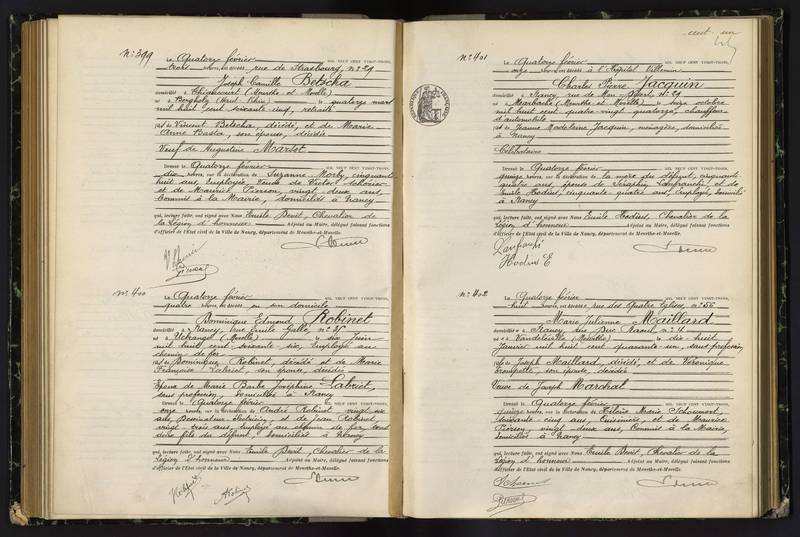 N° 399
Le Quatorze février MIL NEUF CENT VINGT-TROIS,
trois heures, est décédé, rue de Strasbourg, n° 29
Joseph Camille Betscha
domicilié à (Meurthe et Moselle)
né à Bergholz (Haut Rhin) le quatorze mars
mil huit cent soixante cinq, retraité
fils de Vincent Betscha, décédé, et de Marie
Anne Basta, son épouse, décédée
Veuf de Augustine Marsot
Dressé le Quatorze février MIL NEUF CENT VINGT-TROIS,
dix heures, sur la déclaration de Suzanne Morby, cinquante
huit ans, employée, Veuve de Victor
et de Maurice Pierson, vingt deux ans,
Commis à la Mairie, domiciliés à Nancy
qui, lecture faite, ont signé avec Nous Emile Benit, Chevalier de
la Légion d'honneur Adjoint au Maire, délégué faisant fonctions
d'officier de l'Etat civil de la Ville de Nancy, département de Meurthe-et-Moselle.
N° 400
Le Quatorze février MIL NEUF CENT VINGT-TROIS,
quatre heures, est décédé en son domicile
Dominique Edmond Robinet
domicilié à Nancy, rue Emile Gallé, n° 25
né à Uckange (Moselle) le six Juin
mil huit cent soixante six, employé au
chemin de fer
fils de Dominique Robinet, décédé et de Marie
Françoise Labriet, son épouse, décédée
Epoux de Marie Barbe Joséphine Labriet,
sans profession, domiciliée à Nancy
Dressé le Quatorze février MIL NEUF CENT VINGT-TROIS,
onze heures, sur la déclaration de André Robinet, vingt six
ans, Dessinateur et de Jean Robinet,
vingt trois ans, employé au chemin de fer, tous
deux fils du défunt, domiciliés à Nancy
qui, lecture faite, ont signé avec Nous Emile Benit, Chevalier de la
Légion d'honneur Adjoint au Maire, délégué faisant fonctions
d'officier de l'Etat civil de la Ville de Nancy, département de Meurthe-et-Moselle.
N° 401
Le Quatorze février MIL NEUF CENT VINGT-TROIS,
onze heures, est décédé à l'Hôpital Villemin
Charles Pierre Jacquin
domicilié à Nancy, rue de Mon-Désert, n° 29
né à Marbache (Meurthe et Moselle) le seize octobre
mil huit cent quatre-vingt quatorze, chauffeur
d'automobile
fils de Jeanne Madeleine Jacquin, ménagère, domiciliée
à Nancy
Célibataire
Dressé le Quatorze février MIL NEUF CENT VINGT-TROIS,
quinze heures, sur la déclaration de la mère du défunt, cinquante
quatre ans, épouse de Séraphin Lanfranchi et de
Emile Hodius, cinquante quatre ans, employé, domiciliés
à Nancy
qui, lecture faite, ont signé avec Nous Emile Chevalier de la
Légion d'honneur Adjoint au Maire, délégué faisant fonctions
d'officier de l'Etat civil de la Ville de Nancy, département de Meurthe-et-Moselle.
Lanfranchi
Hodius E
N° 402
Le Quatorze février MIL NEUF CENT VINGT-TROIS,
huit heures, est décédée, rue des Quatre Eglises, n° 56
Marie Julienne Maillard
domiciliée à Nancy, rue Duc Raoul n° 4
née à Vandeléville (Meurthe) le dix huit
Janvier mil huit cent quarante-un, sans profession,
fille de Joseph Maillard, décédé, et de Véronique
son épouse, décédée
Veuve de Joseph Marchal
Dressé le Quatorze février MIL NEUF CENT VINGT-TROIS,
quinze heures, sur la déclaration de Marie
soixante-cinq ans, Cuisinière, et de Maurice
Pierson, vingt deux ans, Commis à la Mairie,
domiciliés à Nancy
qui, lecture faite, ont signé avec Nous Emile Benit, Chevalier de la
Légion d'honneur Adjoint au Maire, délégué faisant fonctions
d'officier de l'Etat civil de la Ville de Nancy, département de Meurthe-et-Moselle.